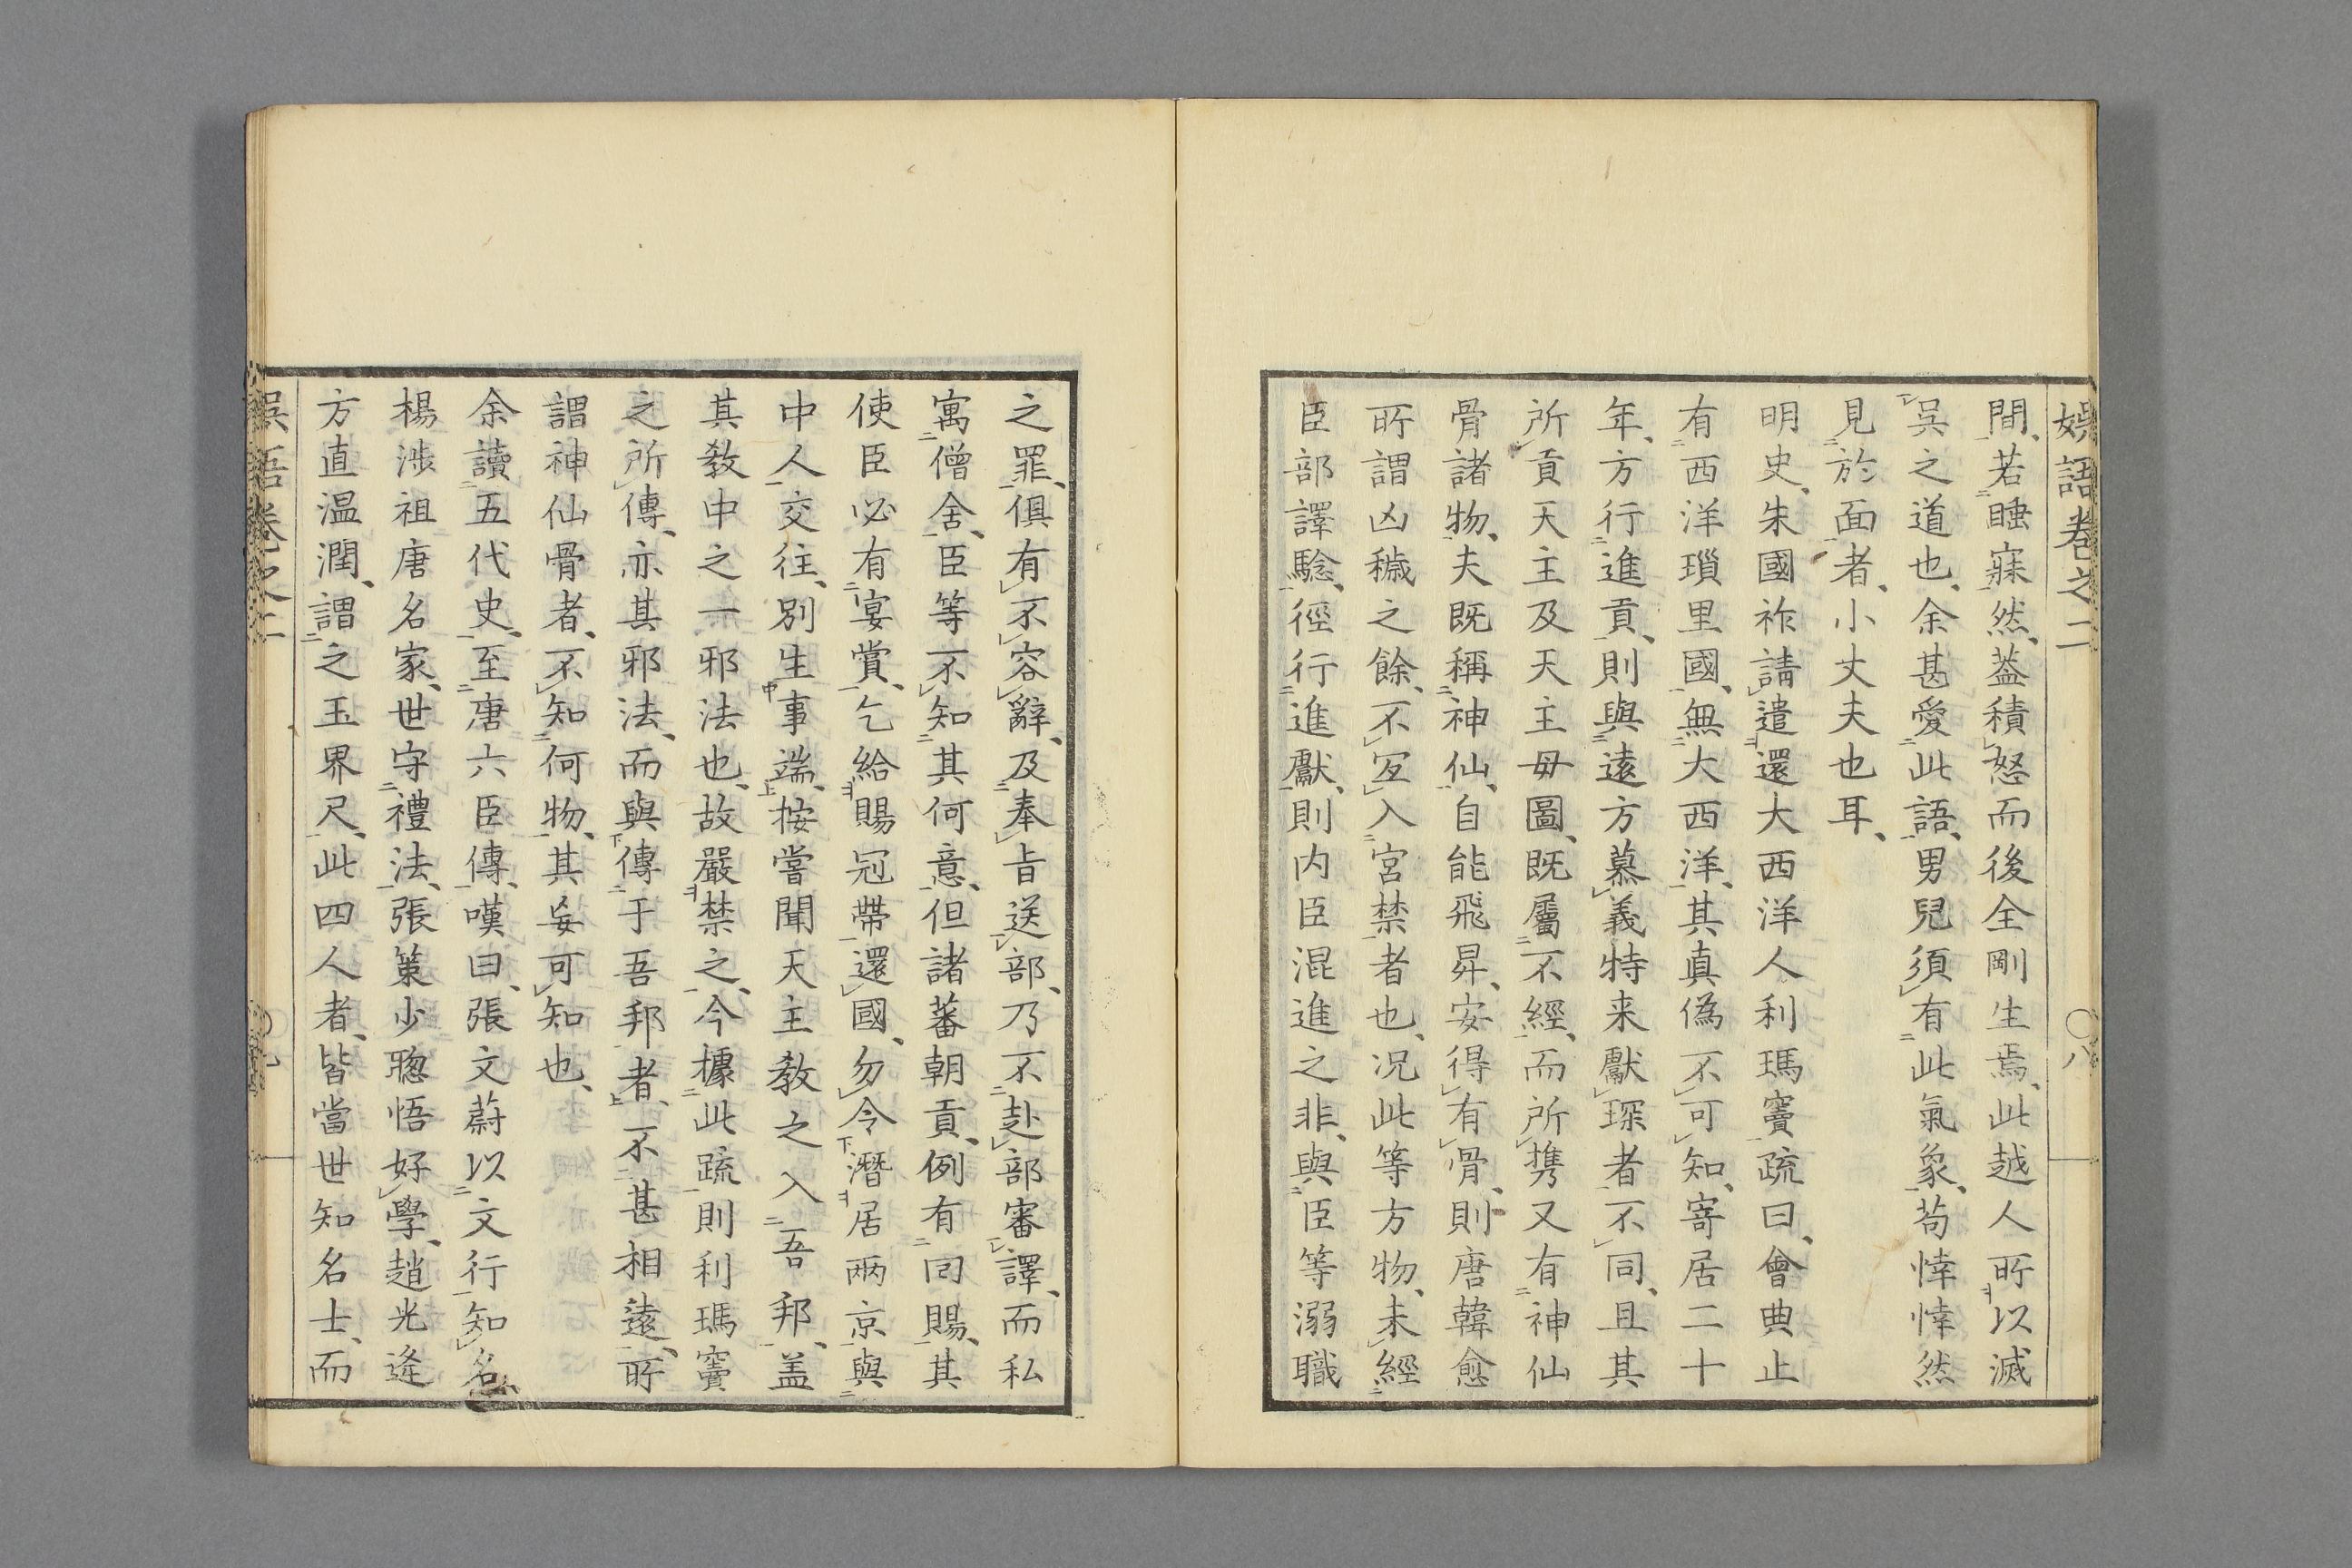 娯語卷之二 〇八
間、若睡寐然、葢積怒而後全剛生焉、此越人所以滅
吳之道也、余甚愛此語、男兒須有此氣象、茍悻悻然
見於面者、小丈夫也耳、
明史、朱國祚請遣還大西洋人利瑪竇疏曰、會典止
有西洋瑣里國、無大西洋、其真偽不可知、寄居二十
年、方行進貢、則與遠方慕義特来獻琛者不同、且其
所貢天主及天主毋圖、既屬不經、而所携又有神仙
骨諸物、夫既稱神仙、自能飛昇、安得有骨、則唐韓愈
所謂凶穢之餘、不宐入宮禁者也、况此等方物、未經
臣部譯驗、徑行進獻、則内臣混進之非、與臣等溺職
之罪、俱有不容辭、及奉㫖送部、乃不赴部審譯、而私
寓僧舍、臣等不知其何意、但諸蕃朝貢、例有囘賜、其
使臣必有宴賞、乞給賜冠帶還國、勿令潛居兩京與
中人交往、別生事端、按嘗聞天主教之入吾邦、盖
其教中之一邪法也、故嚴禁之、今據此疏則利瑪竇
之所傳、亦其邪法、而與傳于吾邦者、不甚相遠、所
謂神仙骨者、不知何物、其妄可知也、
余讀五代史、至唐六臣傳、嘆曰、張文蔚以文行知名
楊涉祖唐名家、世守禮法、張策少聰悟好學、趙光逢
方直温潤、謂之玉界尺、此四人者、皆當世知名士、而
娯語卷之二 〇九